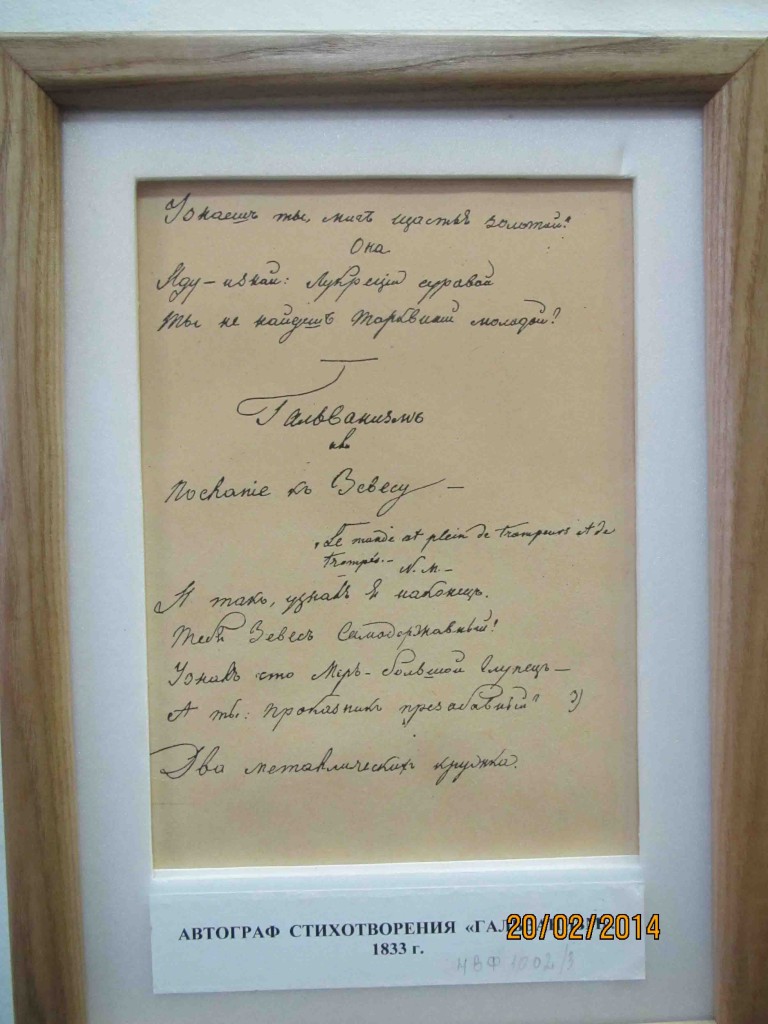 Узнаешь ты мигъ щастья золотой?
Она
Жду – и знай: Лукреціи суровой
Ты не найдешь Тарквиній молодой?
Гальванизмъ
или
Посланіе къ Зевесу –
„Le monde est plein de trompeurs et de
trompés. –
N. M. –
И такъ, узналъ я наконецъ.
Тебя Зевесъ Самодержавный!
Узналъ что Міръ – большой глупецъ –
А ты: проказникъ презабавный" 3)
Два металлическихъ кружка.
АВТОГРАФ СТИХОТВОРЕНИЯ «ГАЛ
20/02/2014
1833 г.
НВФ 1002/3